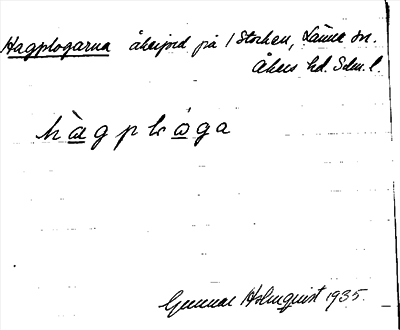 Hagplogarna åkerjord på 1 Storken, Länna sn.
Åkers hd. Sdm. l.
hàgplòga
Gunnar Holmquist 1935.